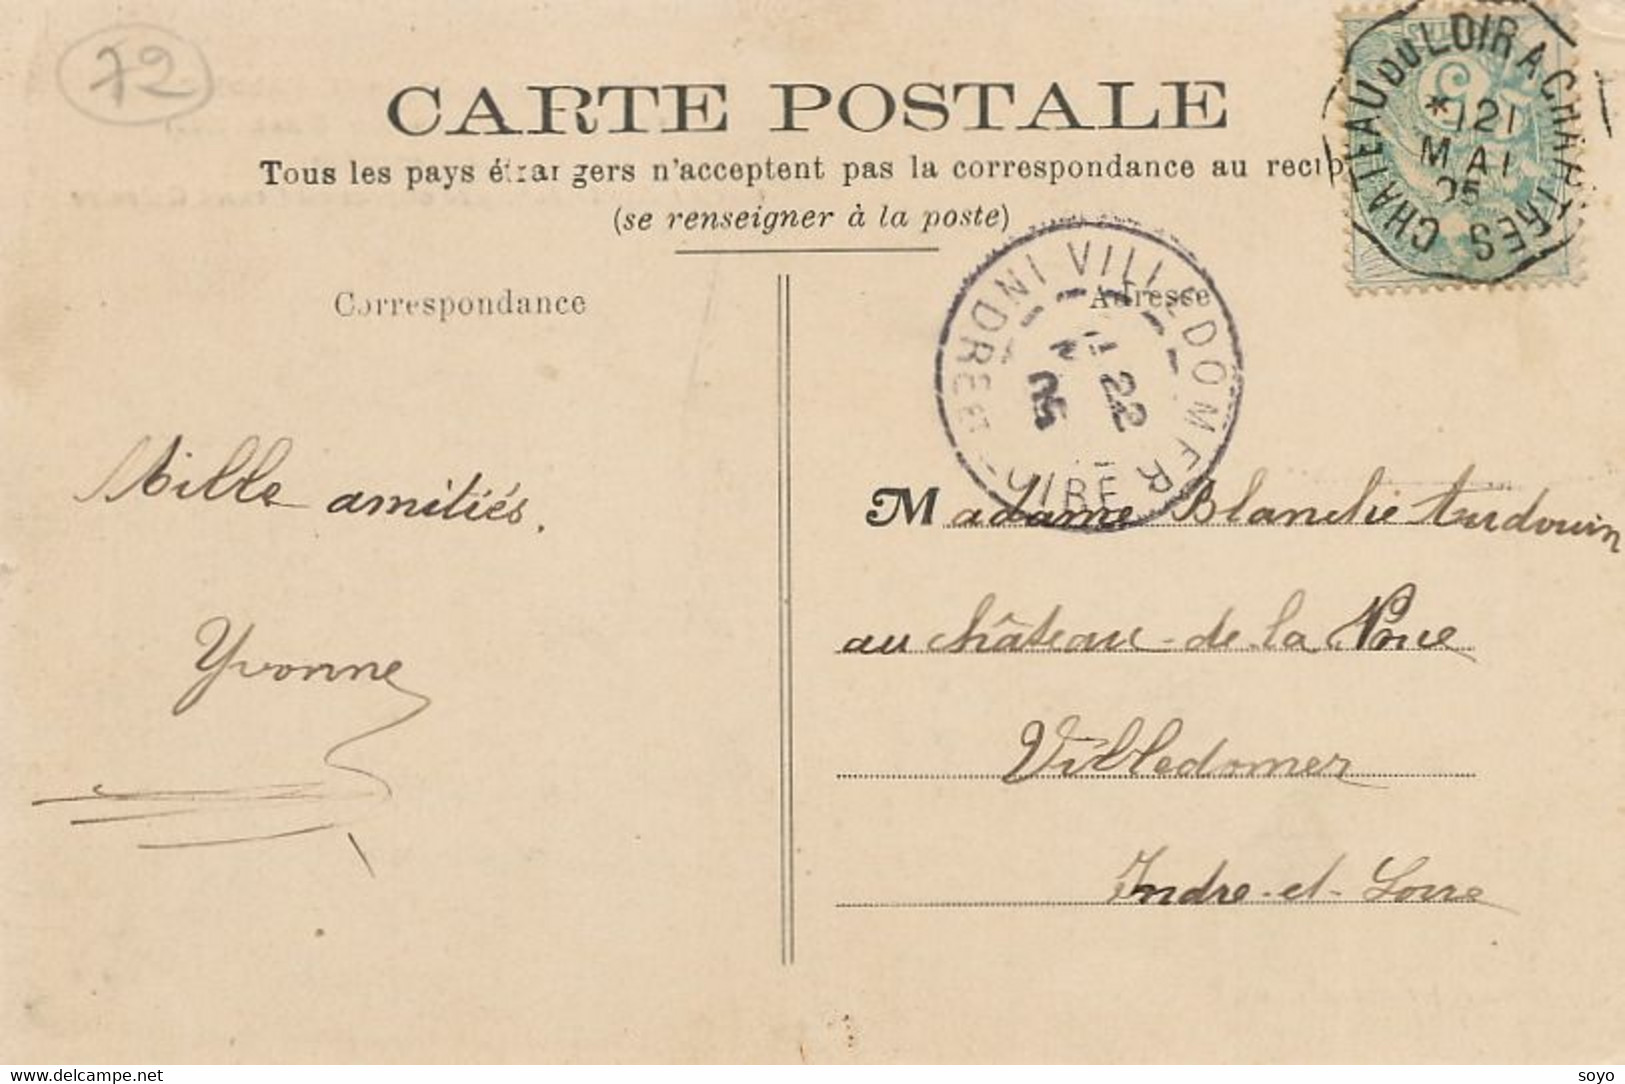 72
CARTE POSTALE
Tous les pays étrangers n'acceptent pas la correspondance au recip
(se renseigner à la poste)
CHATEAU DU LOIR A CHARTRES
*121
MAI
05
Correspondance
Adresse
VILLEDOMER
22
05
INDRE ET LOIRE
Mille amitiés.
Yvonne
Madame Blanche Audouin
au château de la Noue
Villedomer
Indre-et-Loire
https://www.delcampe.net
soyo